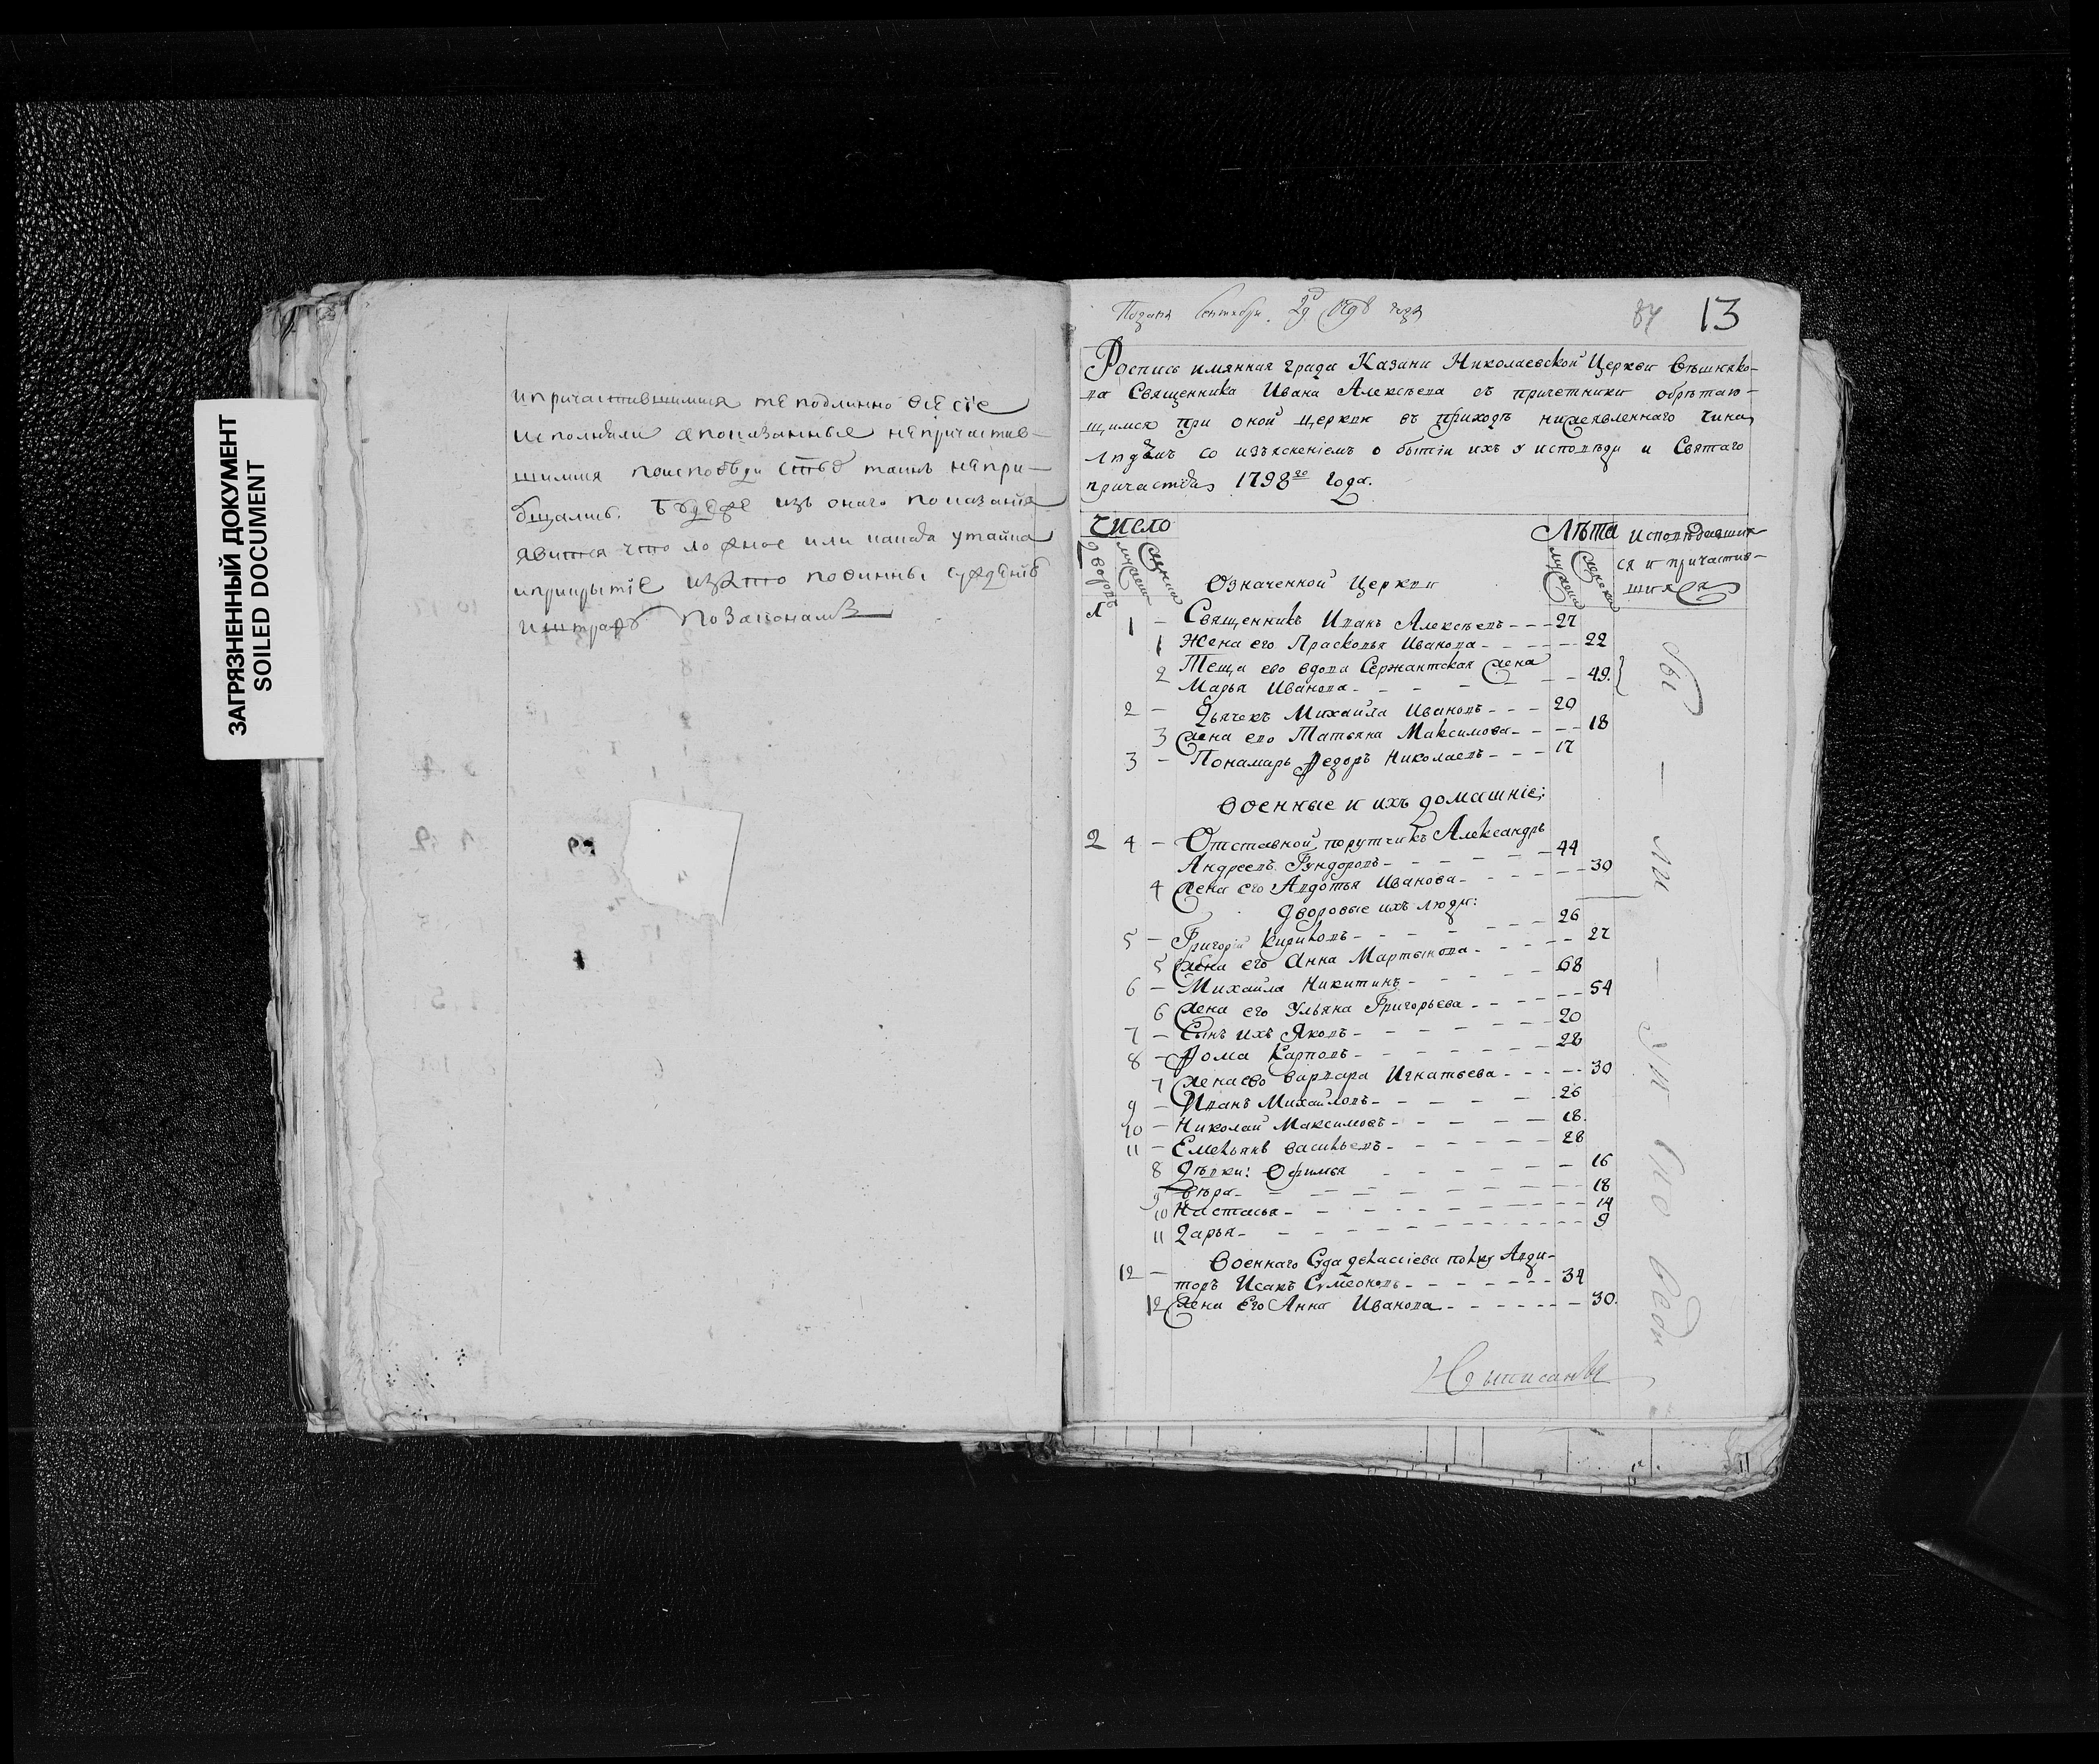 ЗАГРЯЗНЕННЫЙ ДОКУМЕНТ
SOILED DOCUMENT
и причастившимися те подлинно все сіе
исполнили а показанные не причастив-
шимися по исповѣди стыхъ таинъ не при-
бщались. Буде же изъ онаго показанія
явится что ложное или какая утайка
и прикрытіе и за то повинны сужденію
и штрафу по законамъ
Подана Сентября 29 1798 года
84 13
Роспись имянная града Казани Николаевской Церкви Вѣшняко-
ва Священника Ивана Алексѣева съ причетники обрѣтаю-
щимся при оной церкви въ приходѣ нижеявленнаго чина
людѣмъ со изъясненіемъ о бытіи ихъ у исповѣди и Святаго
причастія 1798го года.
Число
Лѣта
Исповѣдавших-
ся и причастив-
шихся
дворовъ
мужска
женска
мужска
женска
Означенной Церкви
1 1 – Священникъ Иванъ Алексѣевъ - - - 27
1 Жена его Прасковья Иванова - - - 22
2 Теща его вдова Сержантская жена
Марья Иванова - - - 49.
2 – Дьячекъ Михайла Ивановъ - - - 20
3 жена его Татьяна Максимова - - - 18
3 – Понамарь Федоръ Николаевъ - - - 17
Военные и ихъ домашніе;
2 4 – Отставной порутчикъ Александръ
Андреевъ Гундоровъ - - - 44
4 жена его Авдотья Иванова - - - 30
дворовые ихъ люди:
5 – Григорій Кириловъ - - - 26
5 жена его Анна Мартынова - - - 27
6 – Михайла Никитинъ - - - 68
6 жена его Ульяна Григорьева - - - 54
7 – Сынъ ихъ Яковъ - - - 20
8 – Фома Карповъ - - - 28
7 жена ево Варвара Игнатьева - - - 30
9 – Иванъ Михайловъ - - - 26
10 – Николай Максимовъ - - - 18.
11 – Емельянъ Васильевъ - - - 28
8 Дѣвки: Офимья - - - 16
9 Вѣра - - - 18
10 Настасья - - - 14
11 Дарья - - - 9
12 – Военнаго Суда полку Ауди-
торъ Исакъ Сумеоновъ - - - 34
12 жена его Анна Иванова - - - 30.
бы – ли – у и